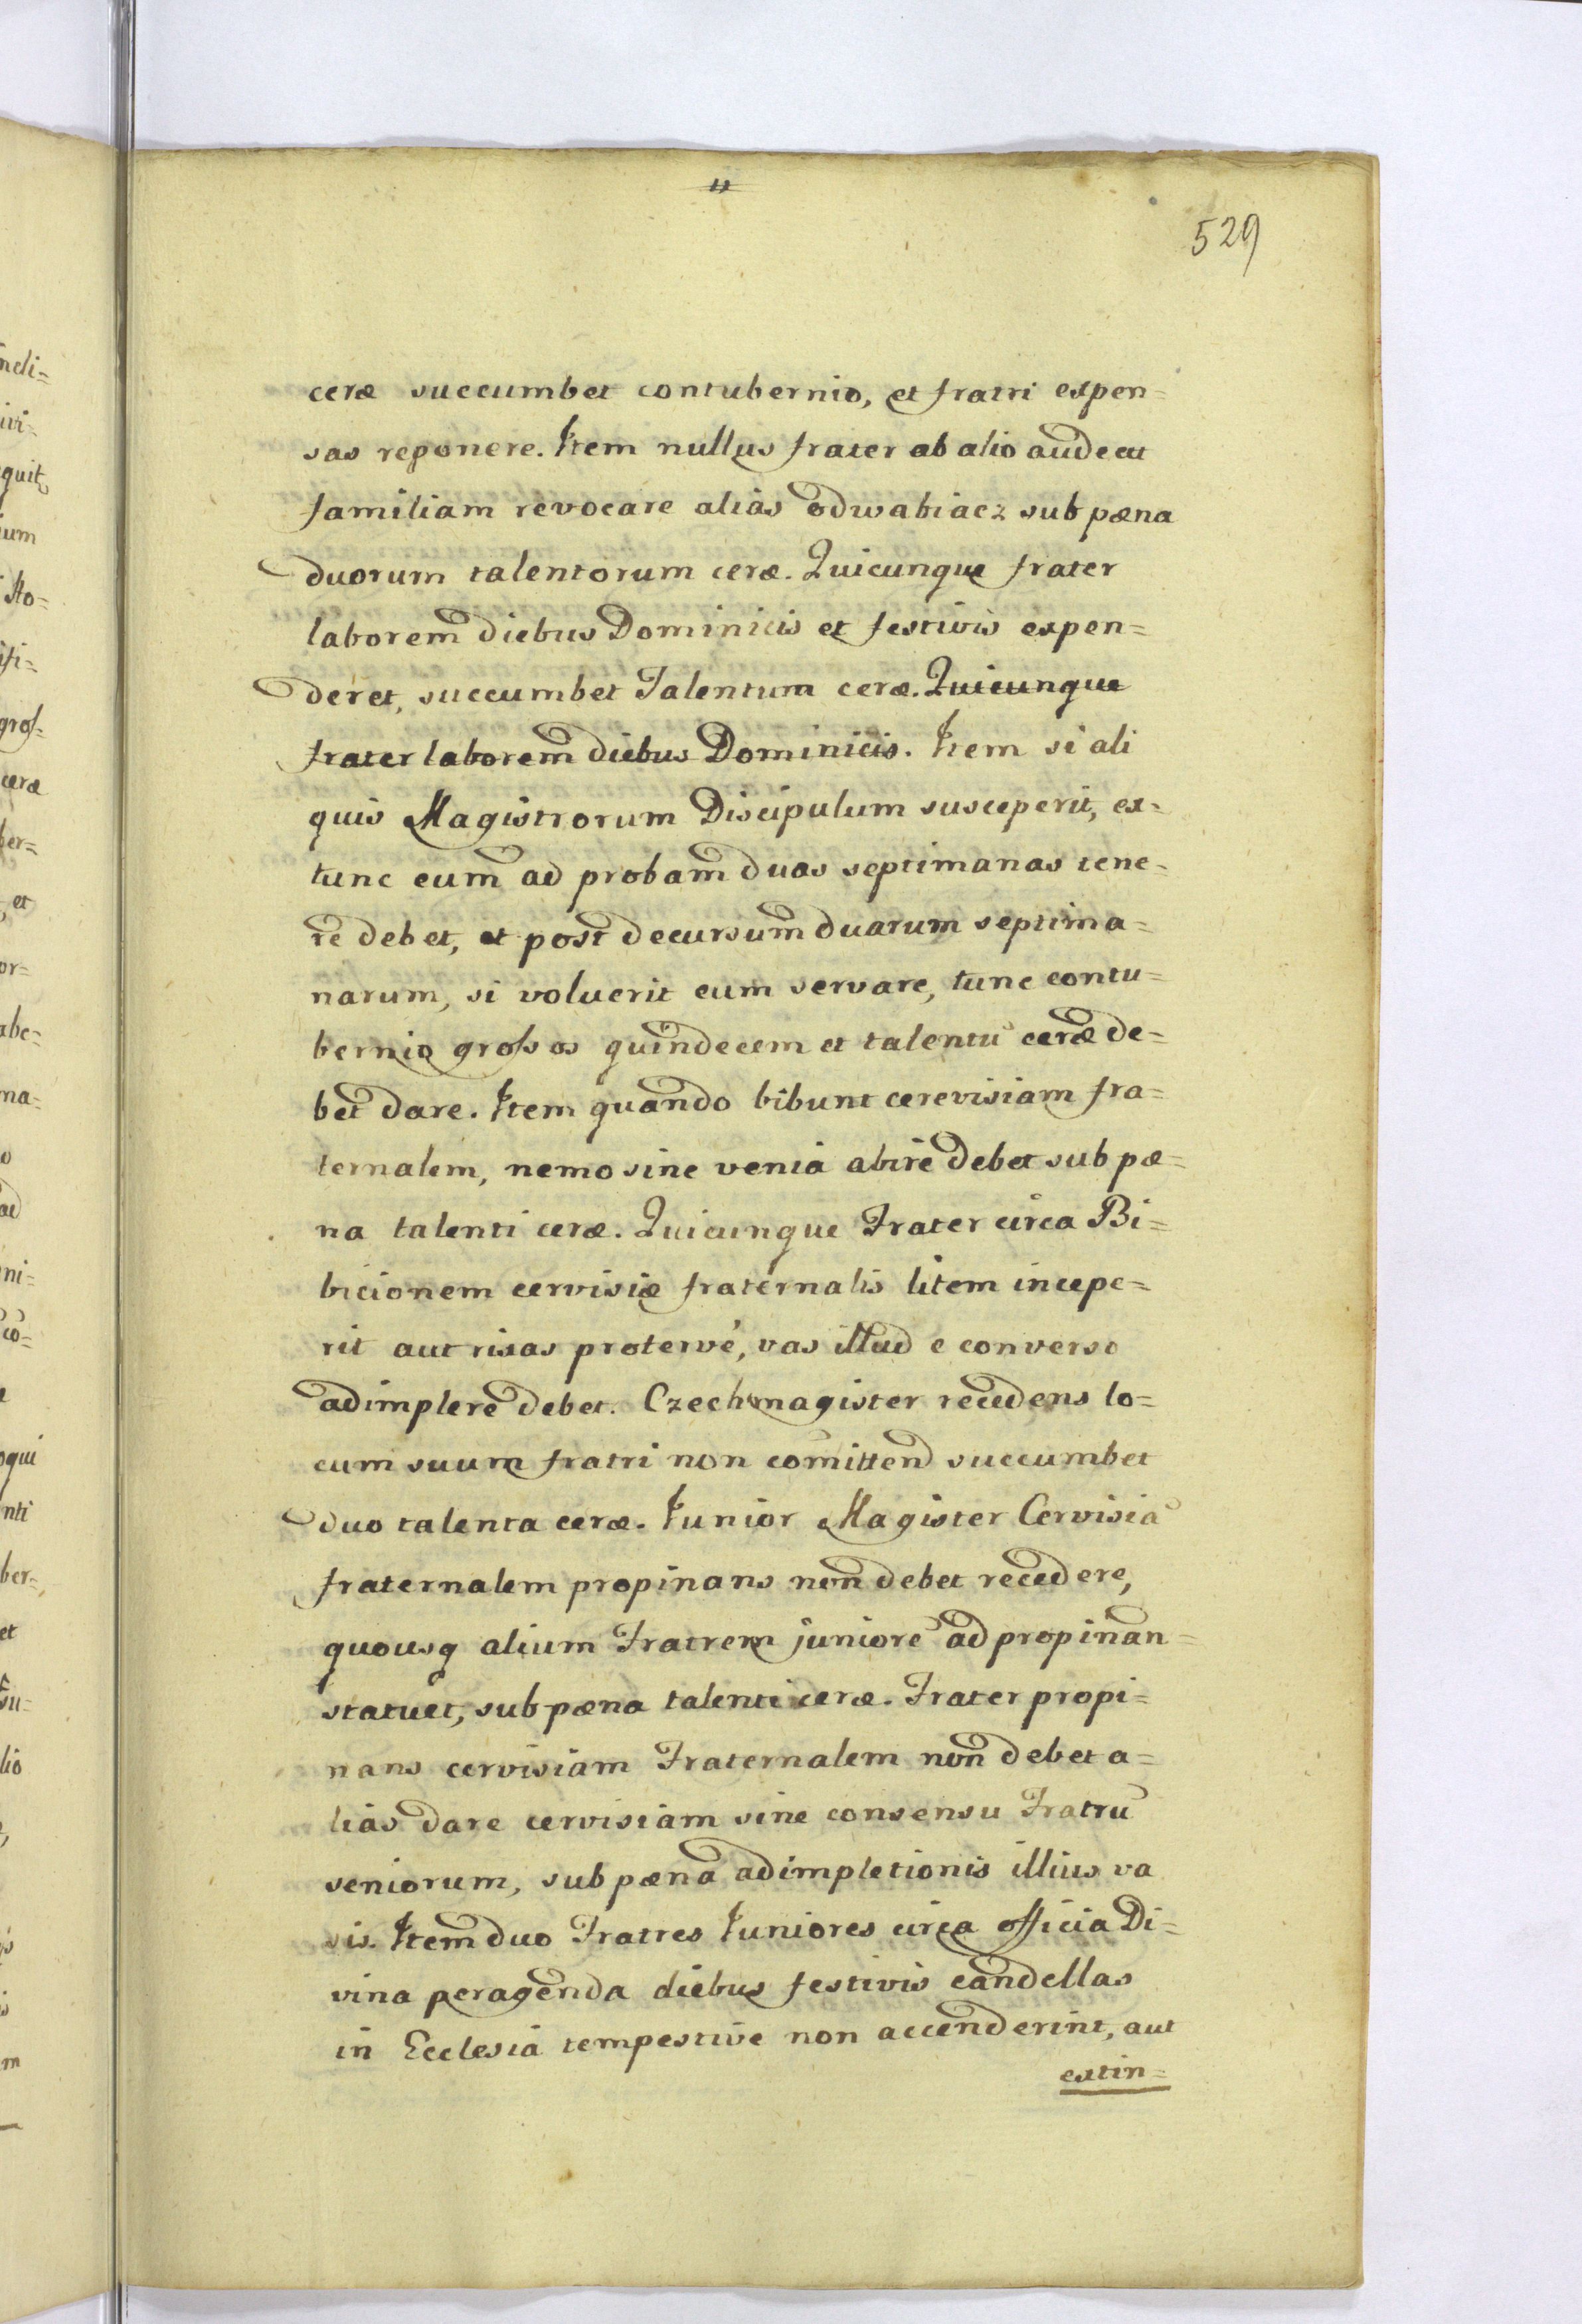 11
529
ceræ succumbet contubernio, et fratri expen=
sas reponere. Item nullus frater ab alio audeat
familiam revocare alias odwabiacz sub pæna
duorum talentorum ceræ. Quicunque frater
laborem diebus Dominicis et festivis expen=
deret, succumbet Talentum ceræ. Quicunque
frater laborem diebus Dominicis. Item si ali
quis Magistrorum Discipulum susceperit, ex=
tunc eum ad probam duas septimanas tene=
re debet, et post decursum duarum septima=
narum, si voluerit eum servare, tunc contu=
bernio grossos quindecem et talentũ ceræ de=
bet dare. Item quando bibunt cerevisiam fra=
ternalem, nemo sine venia abire debet sub pæ=
na talenti ceræ. Quicunque Frater circa Bi=
bicionem cervisiæ fraternalis litem incepe=
rit aut rixas protervè, vas illud e converso
adimplere debet. Czechmagister recedens lo=
cum suum fratri non comittend succumbet
duo talenta ceræ. Iunior Magister Cervisiã
fraternalem propinans non debet recedere,
quousq alium Fratrem juniorẽ ad propinan=
statuet, sub pæna talenti ceræ. Frater propi=
nans cervisiam Fraternalem non debet a=
lias dare cervisiam sine consensu Fratrũ
seniorum, sub pæna adimpletionis illius va
sis. Item duo Fratres Iuniores circa officia Di=
vina peragenda diebus festivis candellas
in Ecclesia tempestive non accenderint, aut
extin=